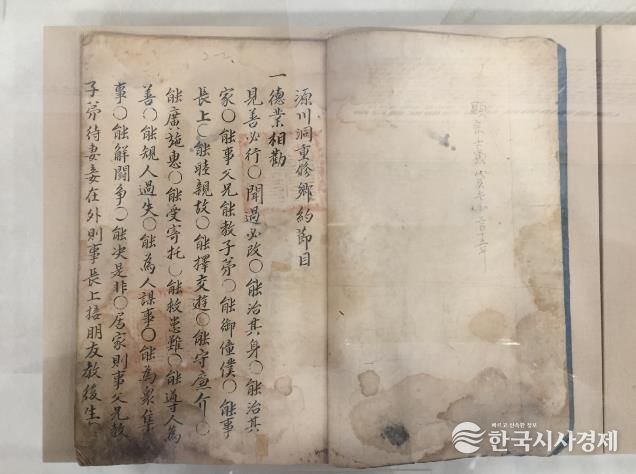 源川洞重修鄉約節目
一德業相勸
見善必行○聞過必改○能治其身○能治其
家○能事父兄能教子弟○能御僮僕○能事
長上○能睦親故○能擇交遊○能守廉介○
能廣施惠○能受寄托○能救患難○能導人為
善○能規人過失○能為人謀事○能為衆集
事○能解鬪爭○能决是非○居家則事父兄教
子弟待妻妾在外則事長上接朋友教後生
빠르고 신속한 정보
한국시사경제